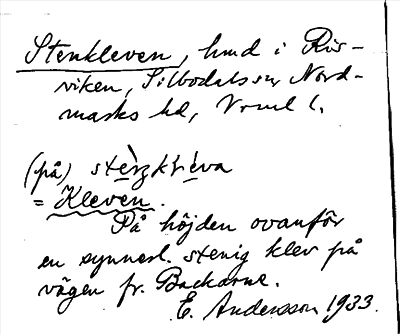 Stenkleven, hmd i Ris-
viken, Silbodals sn Nord-
marks hd, Vrml l.
(på)
= Kleven.
På höjden ovanför
en synnerl. stenig klev på
vägen fr. Backarne.
E. Andersson 1933.